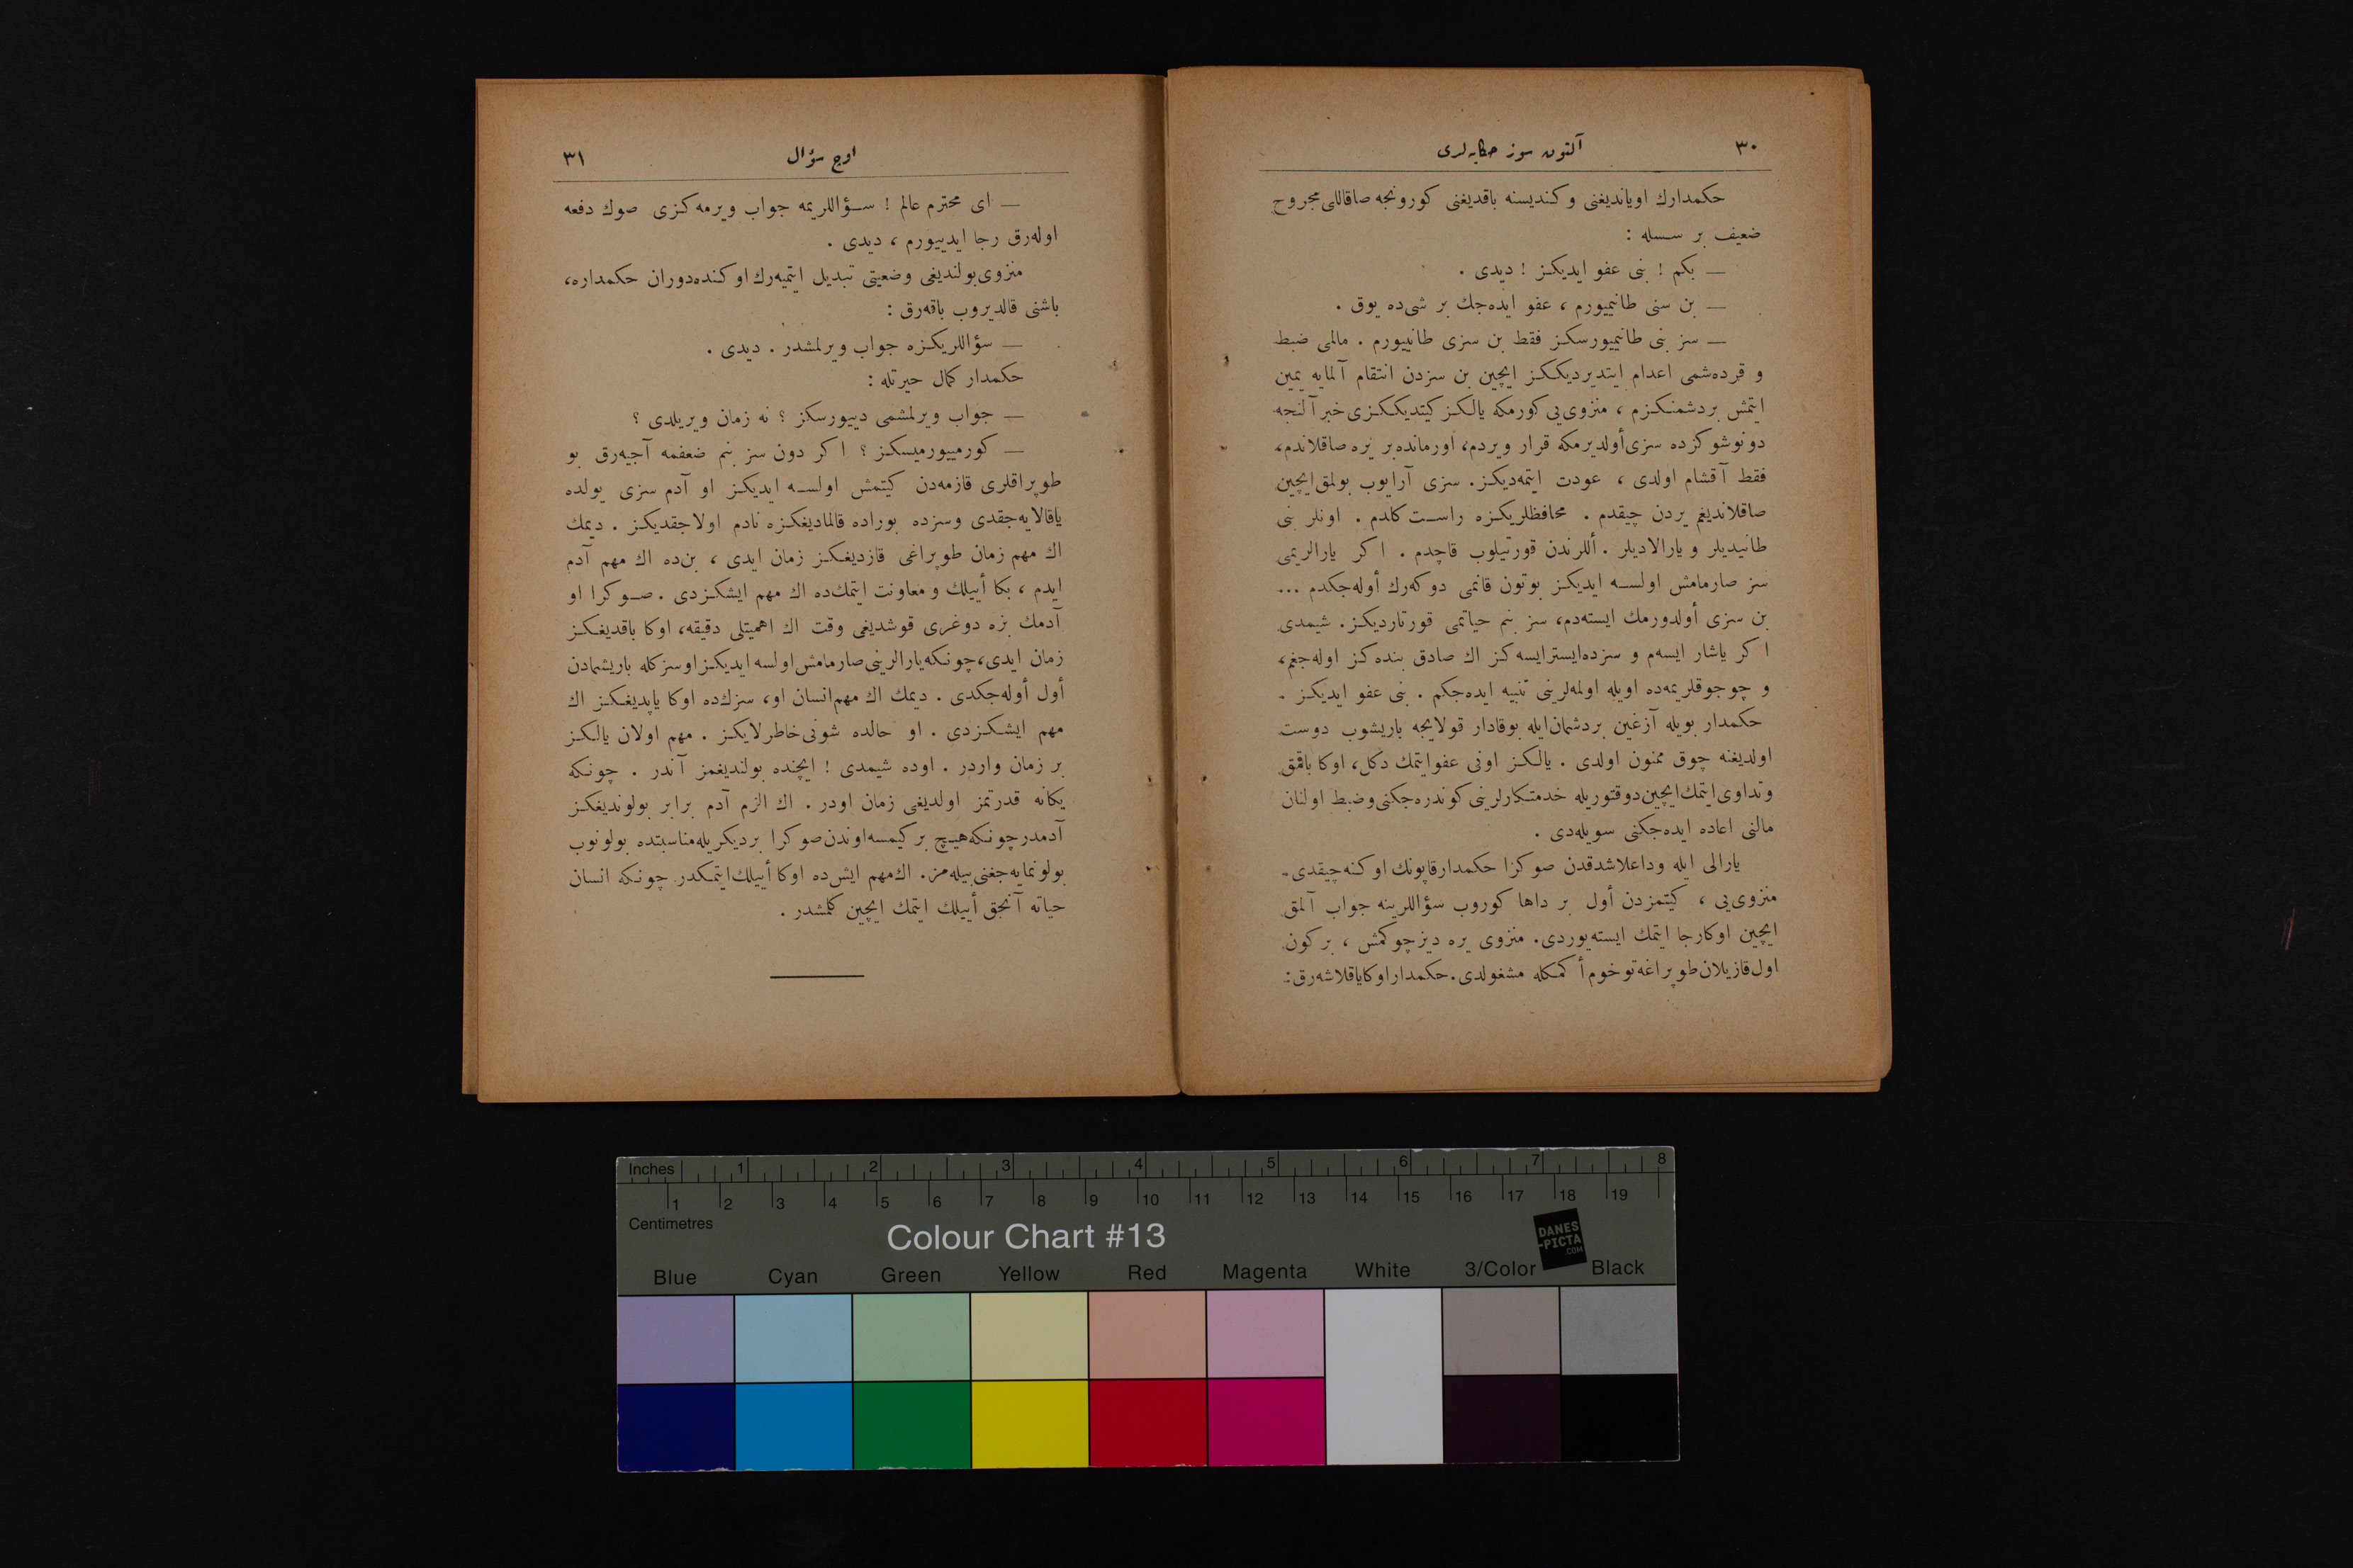 ٣٠
آلتون سوز حكايه‌لرى
حكمدارك اوياندیغنی و كنديسنه باقديغنی كورونجه صاقاللی مجروح
ضعيف بر سسله :
— بكم ! بنی عفو ايديكز ! ديدی .
— بن سنی طانيميورم ، عفو ايده‌جك بر شی‌ده يوق .
— سز بنی طانيميورسكز فقط بن سزی طانييورم . مالمی ضبط
و قرده‌شمی اعدام ايتديرديككز ايچين بن سزدن انتقام آلمايه يمين
ايتمش بردشمنكزم ، منزوی‌يی كورمكه يالكز كيتديككزی خبر آلنجه
دونوشوكزده سزی أولديرمكه قرار ويردم، اورمانده‌بر يره صاقلاندم،
فقط آقشام اولدی ، عودت ايتمه‌ديكز. سزی آرايوب بولمق ايچين
صاقلانديغم يردن چيقدم . محافظلريكزه راست كلدم . اونلر بنی
طانيديلر و يارالاديلر . أللرندن قورتيلوب قاچدم . اكر يارالريمی
سز صارمامش اولسه ايديكز بوتون قانمی دوكه‌رك أوله‌جكدم ...
بن سزی أولدورمك ايسته‌دم، سز بنم حياتمی قورتارديكز. شيمدی
اكر ياشار ايسه‌م و سزده‌ايسترايسه‌كز اك صادق بنده‌كز اوله‌جغم،
و چوجوقلريمه‌ده اويله اولمه‌لرينی تنبيه ايده‌جكم . بنی عفو ايديكز .
حكمدار بويله آزغين بردشمان‌ايله بوقادار قولايجه باريشوب دوست
اولديغنه چوق ممنون اولدی . يالكز اونی عفوايتمك دكل، اوكا باقمق
وتداوی‌ايتمك‌ايچين‌دوقتوريله خدمتكارلرينی‌كوندره‌جكنی‌وضبط اولنان
مالنی اعاده ايده‌جكنی سويله‌دی .
يارالی ايله وداعلاشدقدن صوكرا حكمدارقاپونك اوكنه‌چيقدی.
منزوی‌يی ، كيتمزدن أول بر داها كوروب سؤاللرينه جواب آلمق
ايچين اوكارجا ايتمك ايسته‌يوردی. منزوی يره ديزچوكمش ، بركون
اول‌قازيلان‌طوپراغه‌توخوم‌أكمكله مشغولدی.حكمداراوكاياقلاشه‌رق:
اوچ سؤال
٣١
— ای محترم عالم ! سؤاللريمه جواب ويرمه‌كزی صوك دفعه
اوله‌رق رجا ايدييورم ، ديدی .
منزوی‌بولنديغی وضعيتی تبديل ايتميه‌رك‌اوكنده‌دوران حكمداره،
باشنی قالديروب باقه‌رق :
— سؤاللريكزه جواب ويرلمشدر . ديدی .
حكمدار كمال حيرتله :
— جواب ويرلمشمی دييورسكز ؟ نه زمان ويريلدی ؟
— كورمييورميسكز ؟ اكر دون سز بنم ضعفمه آجيه‌رق بو
طوپراقلری قازمه‌دن كيتمش اولسه ايديكز او آدم سزی يولده
ياقالايه‌جقدی وسزده بوراده قالماديغكزه نادم اولاجقديكز . ديمك
اك مهم زمان طوپراغی قازديغكز زمان ايدی ، بن‌ده اك مهم آدم
ايدم ، بكا أييلك و معاونت ايتمك‌ده اك مهم ايشكزدی . صوكرا او
آدمك بزه دوغری قوشديغی وقت اك اهميتلی دقيقه، اوكا باقديغكز
زمان ايدی،چونكه‌يارالرينی‌صارمامش‌اولسه ايديكزاوسزكله باريشمادن
أول أوله‌جكدی . ديمك اك مهم‌انسان او، سزك‌ده اوكا ياپديغكز اك
مهم ايشكزدی . او حالده شونی‌خاطرلايكز . مهم اولان يالكز
بر زمان واردر . اوده شيمدی ! ايچنده بولنديغمز آندر . چونكه
يكانه قدرتمز اولديغی زمان اودر . اك الزم آدم برابر بولونديغكز
آدمدرچونكه‌هيچ بركيمسه‌اوندن‌صوكرا برديكريله‌مناسبتده بولونوب
بولونمايه‌جغنی‌بيله‌مز. اك‌مهم ايش‌ده اوكا أييلك‌ايتمكدر چونكه انسان
حياته آنجق أييلك ايتمك ايچين كلمشدر .
Inches 1 2 3 4 5 6 7 8
1 2 3 4 5 6 7 8 9 10 11 12 13 14 15 16 17 18 19
Centimetres
Colour Chart #13
DANES
-PICTA
.COM
Blue Cyan Green Yellow Red Magenta White 3/Color Black